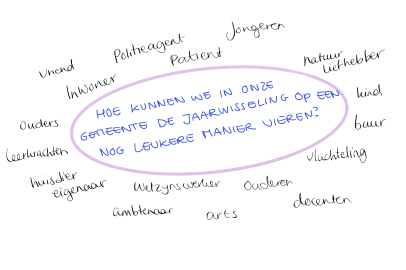 Jongeren
Politieagent
Patient
vriend
natuur
liefhebber
Inwoner
HOE KUNNEN WE IN ONZE
GEMEENTE DE JAARWISSELING OP EEN
NOG LEUKERE MANIER VIEREN?
kind
ouders
buur
leerkrachten
vluchteling
huisdier
eigenaar
Welzynswerker
ouderen
ambtenaar
arts
docenten